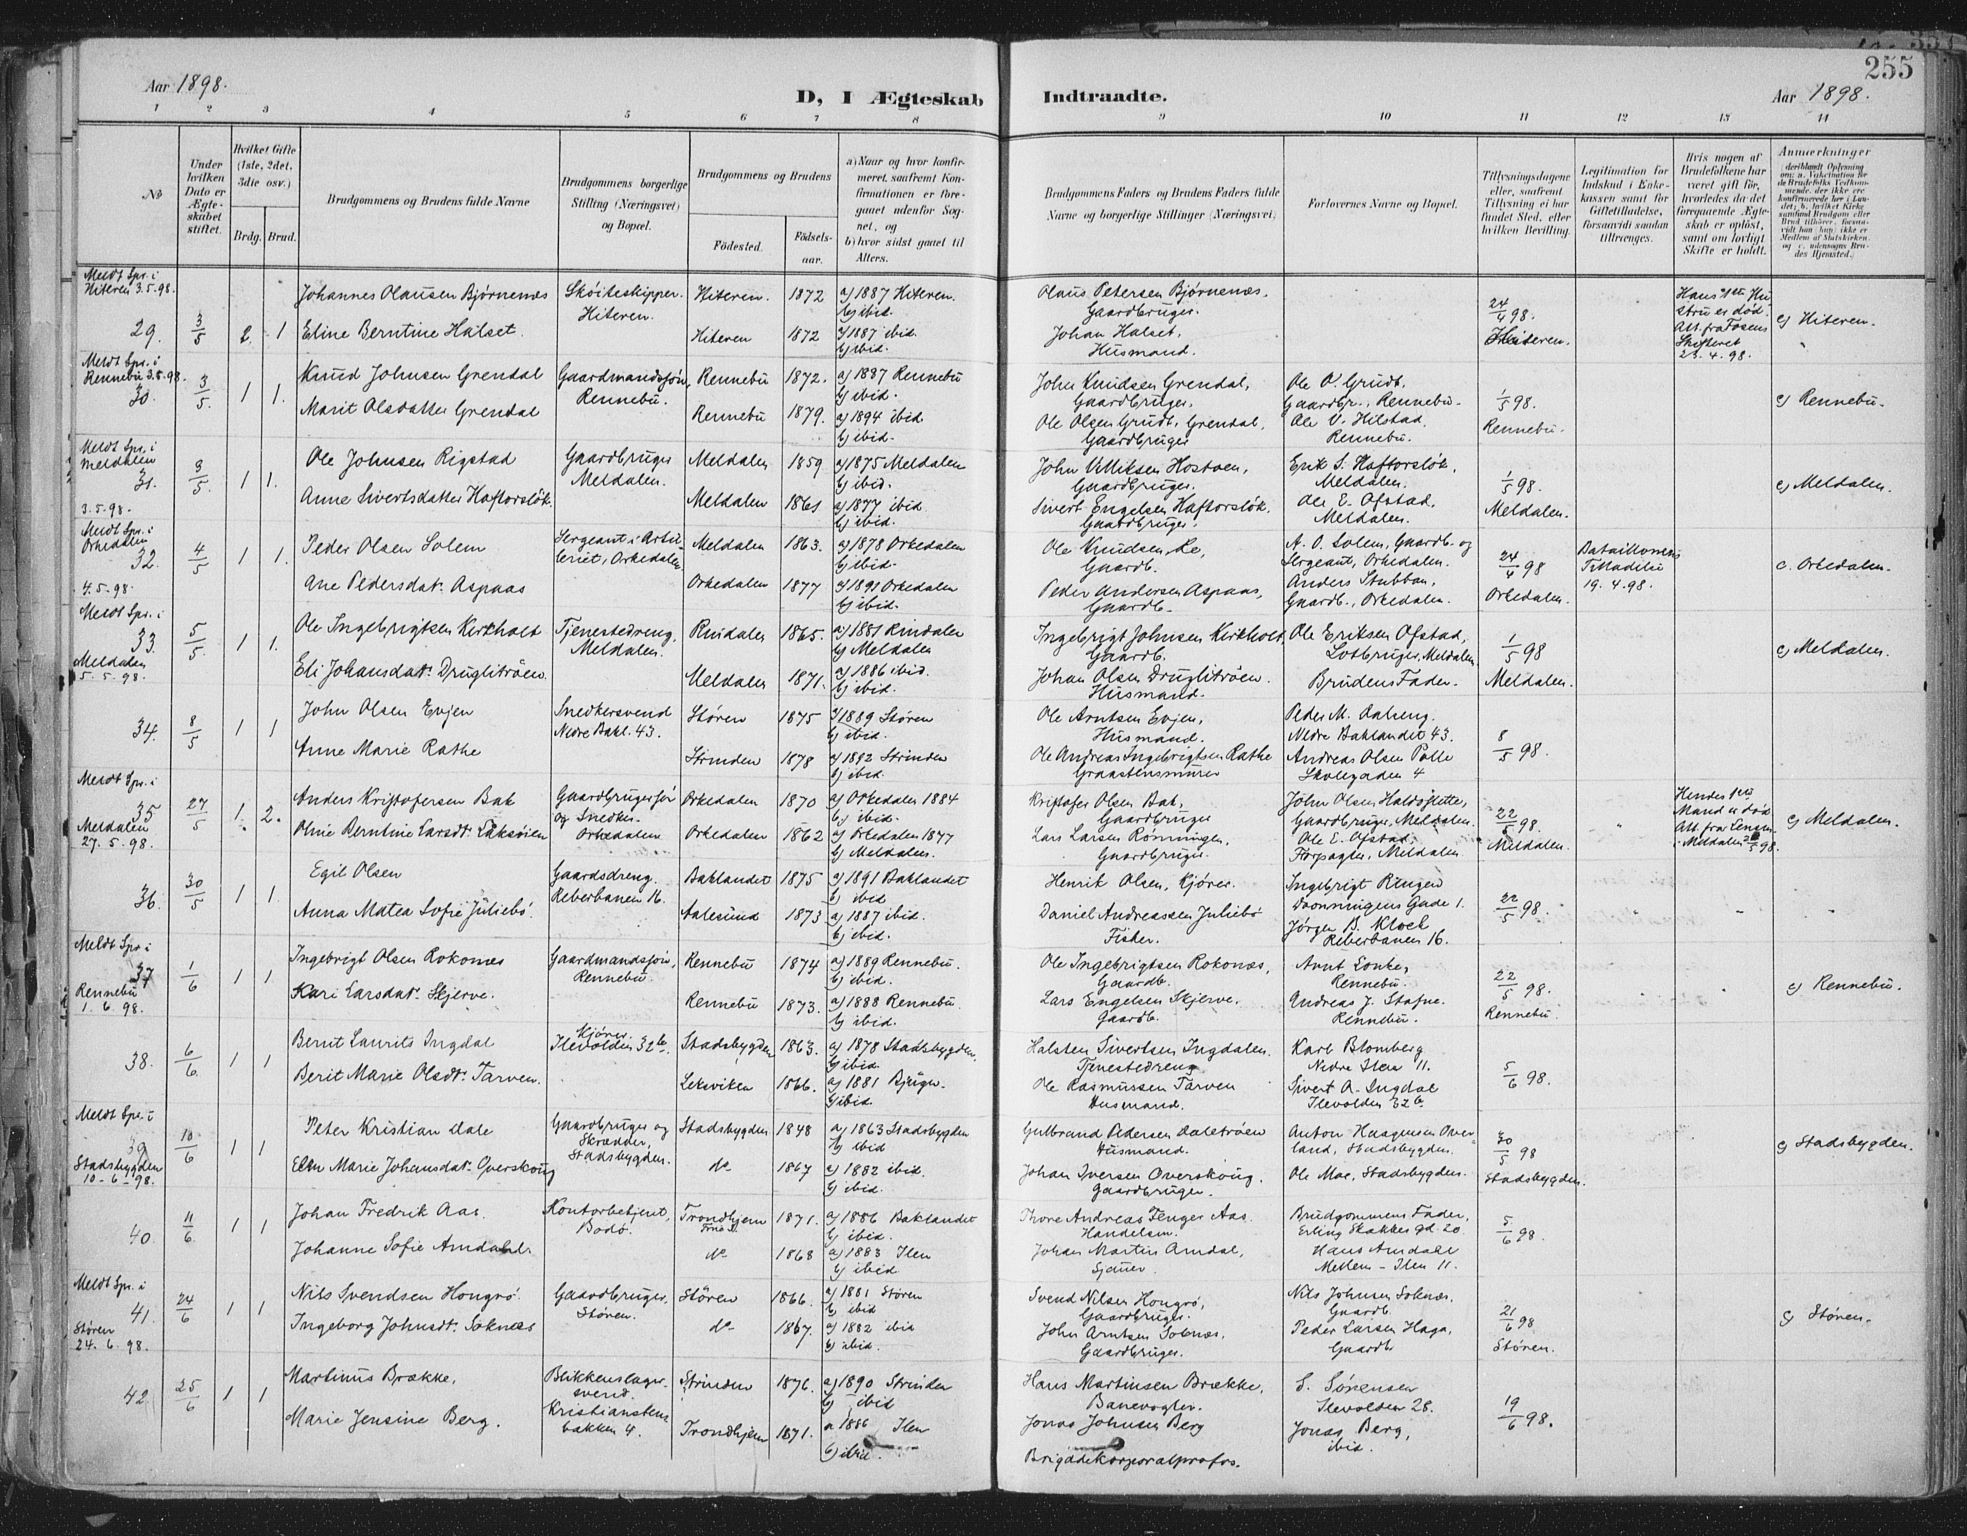 255
Aar 1898.
D, I Ægteskab Indtraadte.
Aar 1898.
1 2 3 4 5 6 7 8 9 10 11 12 13 14
No
Under hvilken Dato er Ægteskabet stiftet.
Hvilket Gifte (1ste, 2det, 3die osv.)
Brdg. Brud.
Brudgommens og Brudens fulde Navne
Brudgommens borgerlige Stilling (Næringsvei) og Bopæl.
Brudgommens og Brudens
Fødested. Fødselsaar.
a) Naar og hvor konfirmeret, saafremt Konfirmationen er foregaaet udenfor Sognet, og
b) hvor sidst gaaet til Alters.
Brudgommens Faders og Brudens Faders fulde Navne og borgerlige Stillinger (Næringsvei)
Forlovernes Navne og Bopæl.
Tillysningsdagene eller, saafremt Tillysning ei har fundet Sted, efter hvilken Bevilling.
Legitimation for Indskud i Enkekassen samt for Giftetilladelse, forsaavidt saadan tiltrænges.
Hvis nogen af Brudefolkene har været gift før, hvorledes da det foregaaende Ægteskab er opløst, samt om lovligt Skifte er holdt.
Anmærkninger
Meldt Spr. i Hiteren 3.5.98.
29. 3/5 2. 1
Johannes Olausen Bjørnenæs Skøiteskipper. Hiteren. Hiteren. 1872 a) 1887 Hiteren. b) ibid.
Olaus Petersen Bjørnenæs, Gaardbruger. 24/4 98. Hiteren. Hans 1ste Hustru er død. Att. fra Fosens Skifteret 23.4.98. c) Hiteren.
Eline Berntine Halset. Hiteren 1872 a) 1887 ibid. b) ibid.
Johan Halset, Husmand.
Meldt Spr. i Rennebu 3.5.98.
30. 3/5 1 1.
Knud Johnsen Grendal Gaardmandssøn, Rennebu. Rennebu 1872. a) 1887 Rennebu b) ibid.
John Knudsen Grendal, Gaardbruger. Ole O. Grudt, Gaardbr., Rennebu. 1/5 98. Rennebu. c) Rennebu.
Marit Olsdatter Grendal Rennebu 1879. a) 1894 ibid b) ibid.
Ole Olsen Grudt, Grendal, Gaardbruger Ole V. Hilstad, Rennebu.
Meldt Spr. i Meldalen 3.5.98.
31. 3/5 1 1.
Ole Johnsen Rigstad Gaardbruger Meldalen. Meldalen 1859 a) 1875 Meldalen b) ibid.
John Villiksen Hostoen, Gaardbruger. Erik S. Haftorsløk, Meldalen. 1/5 98. Meldalen. c) Meldalen.
Anne Sivertsdatter Haftorsløk. Meldalen 1861 a) 1877 ibid. b) ibid.
Sivert Engelsen Haftorsløk, Gaardbruger. Ole E. Ofstad, Meldalen.
Meldt Spr. i Orkedalen 4.5.98.
32. 4/5 1 1.
Peder Olsen Solem Sergeant i Artilleriet, Orkedalen Meldalen 1863. a) 1878 Orkedalen b) ibid.
Ole Knudsen Re, Gaardb. A. O. Solem, Gaardb. og Sergeant, Orkedalen. 24/4 98 Orkedalen. Bataillonens Tilladelse 19.4.98. c. Orkedalen.
Ane Pedersdatr. Aspaas Orkedalen 1877 a) 1891 Orkedalen b) ibid.
Peder Andersen Aspaas, Gaardb. Anders Stubban, Gaardb., Orkedalen.
Meldt Spr. i Meldalen 5.5.98.
33. 5/5 1 1.
Ole Ingebrigtsen Kirkholt Tjenestedreng, Meldalen. Rindalen 1865. a) 1881 Rindalen b) Meldalen
Ingebrigt Johnsen Kirkholt, Gaardb. Ole Eriksen Ofstad, Lotbruger, Meldalen. 1/5 98 Meldalen. c) Meldalen.
Eli Johansdatr. Druglitrøen. Meldalen 1871. a) 1886 ibid. b) ibid.
Johan Olsen Druglitrøen. Husmand. Brudens Fader.
34. 8/5 1 1
John Olsen Evjen Snedkersvend Nedre Bakl. 43. Støren 1875 a) 1889 Støren b) ibid.
Ole Arntsen Evjen, Husmand. Peder M. Dalseng. Nedre Baklandet 43. 8/5 98.
Anne Marie Rathe Strinden 1878 a) 1892 Strinden b) ibid
Ole Andreas Ingebrigtsen Rathe Graastensmurer Andreas Olsen Polle Skolegaden 4
Meldt Spr. i Meldalen 27.5.98.
35 27/5 1. 2.
Anders Kristofersen Bak Gaardbrugersøn og Snedker Orkedalen Orkedalen 1870 a) Orkedalen 1884 b) ibid.
Kristofer Olsen Bak, Gaardbruger John Olsen Haldosletten, Gaardbruger, Meldalen. 22/5 98. Meldalen. Hendes 1ste Mand er død Att. fra Lensm. i Meldalen 98. c) Meldalen.
Oline Berntine Larsdt. Laksøien Orkedalen 1862 a) Orkedalen 1877 b) Meldalen.
Lars Larsen Rønningen, Gaardbruger. Ole E. Ofstad, Forpagter, Meldalen
36. 30/5 1 1.
Egil Olsen Gaardsdreng. Reberbanen 16. Baklandet 1875 a) 1891 Baklandet b) ibid
Henrik Olsen, Kjører. Ingebrigt Ringen Dronningens Gade 1. 22/5 98.
Anna Matea Sofie Juliebø. Aalesund 1873 a) 1887 ibid. b) ibid.
Daniel Andreassen Juliebø Fisker. Jørgen B. Kloek Reberbanen 16.
Meldt Spr. i Rennebu 1.6.98.
37 1/6 1 1
Ingebrigt Olsen Rokonæs Gaardmandssøn, Rennebu. Rennebu 1874 a) 1889 Rennebu. b) ibid.
Ole Ingebrigtsen Rokonæs, Gaardb. Arnt Lonke, Rennebu. 22/5 98. Rennebu. c) Rennebu.
Kari Larsdatr. Skjerve. Rennebu 1873. a) 1888 Rennebu. b) ibid.
Lars Engelsen Skjerve. Gaardb. Andreas J. Stafne. Rennebu.
38. 6/6 1 1
Bernt Laurits Ingdal Kjører Ilevolden 32b. Stadsbygden 1863. a) 1878 Stadsbygden, b) ibid.
Halsten Sivertsen Ingdalen. Tjenestedreng Karl Blomberg Nedre Ilen 11. 5/6 98.
Berit Marie Olsdt. Tarven. Leksviken 1866. a) 1881 Bjugn. b) ibid.
Ole Rasmussen Tarven Husmand. Sivert A. Ingdal Ilevolden 32b.
Meldt Spr. i Stadsbygden 10-6-98.
39 10/6 1 1
Peter Kristian Dale Gaardbruger og Skrædder, Stadsbygden. Stadsbygden 1848 a) 1863 Stadsbygden b) ibid
Gulbrand Pedersen Daletrøen Husmand. Anton Haagensen Overland, Stadsbygden. 30/5 98 Stadsbygden. c) Stadsbygden.
Elen Marie Johansdatr. Overskoug do 1867 a) 1882 ibid. b) ibid.
Johan Iversen Overskoug. Gaardbruger. Ole Moe, Stadsbygden.
40. 11/6 1 1
Johan Fredrik Aas. Kontorbetjent, Bodø. Trondhjem 1871. a) 1886 Baklandet b) ibid.
Thore Andreas Fenger Aas. Handelsm. Brudgommens Fader, Erling Skakkes gd. 20. 5/6 98.
Johanne Sofie Amdahl. do 1868 a) 1883 Ilen b) ibid
Johan Martin Amdal, Sjauer. Hans Amdahl Mellem-Ilen 11.
Meldt Spr. i Støren 24.6.98.
41. 24/6 1 1
Nils Svendsen Hongrø. Gaardbruger, Støren. Støren 1866. a) 1881 Støren b) ibid
Svend Nilsen Hongrø, Gaardbruger. Nils Johnsen Soknæs. Gaardb. 21/6 98 Støren. c) Støren.
Ingeborg Johnsdt. Soknæs do 1867. a) 1882 ibid b) ibid.
John Arntsen Soknæs, Gaardbruger. Peder Larsen Haga, Gaardb.
42 25/6 1 1
Martinus Brække. Blikkenslagersvend. Kristianstensbakken 4. Strinden 1876. a) 1890 Strinden b) ibid
Hans Martinsen Brække, Banevogter. S. Sørensen Ilevolden 28. 19/6 98.
Marie Jensine Berg. Trondhjem 1871. a 1886 Ilen b) ibid.
Jonas Johnsen Berg Brigadekorporalprofos. Jonas Berg, ibid.